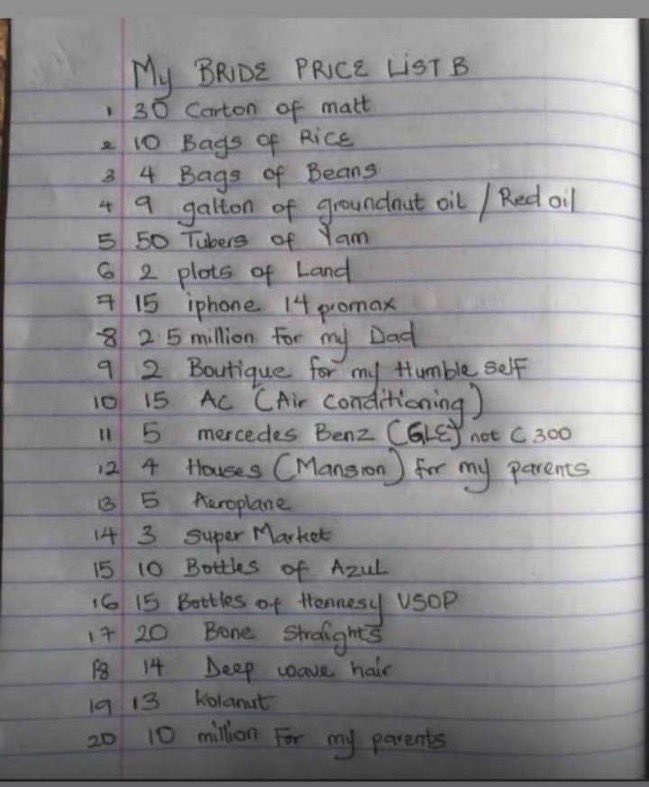 My BRIDE PRICE LIST B
1 30 Carton of matt
2 10 Bags of Rice
3 4 Bags of Beans
4 9 galton of groundnut oil / Red oil
5 50 Tubers of Yam
6 2 plots of Land
7 15 iphone 14 promax
8 2.5 million for my Dad
9 2 Boutique for my Humble self
10 15 AC (Air conditioning)
11 5 mercedes Benz (GLE) not C300
12 4 Houses (Mansion) for my parents
13 5 Aeroplane
14 3 Super Market
15 10 Bottles of Azul
16 15 Bottles of Hennesy VSOP
17 20 Bone Straights
18 14 Deep wave hair
19 13 Kolanut
20 10 million For my parents